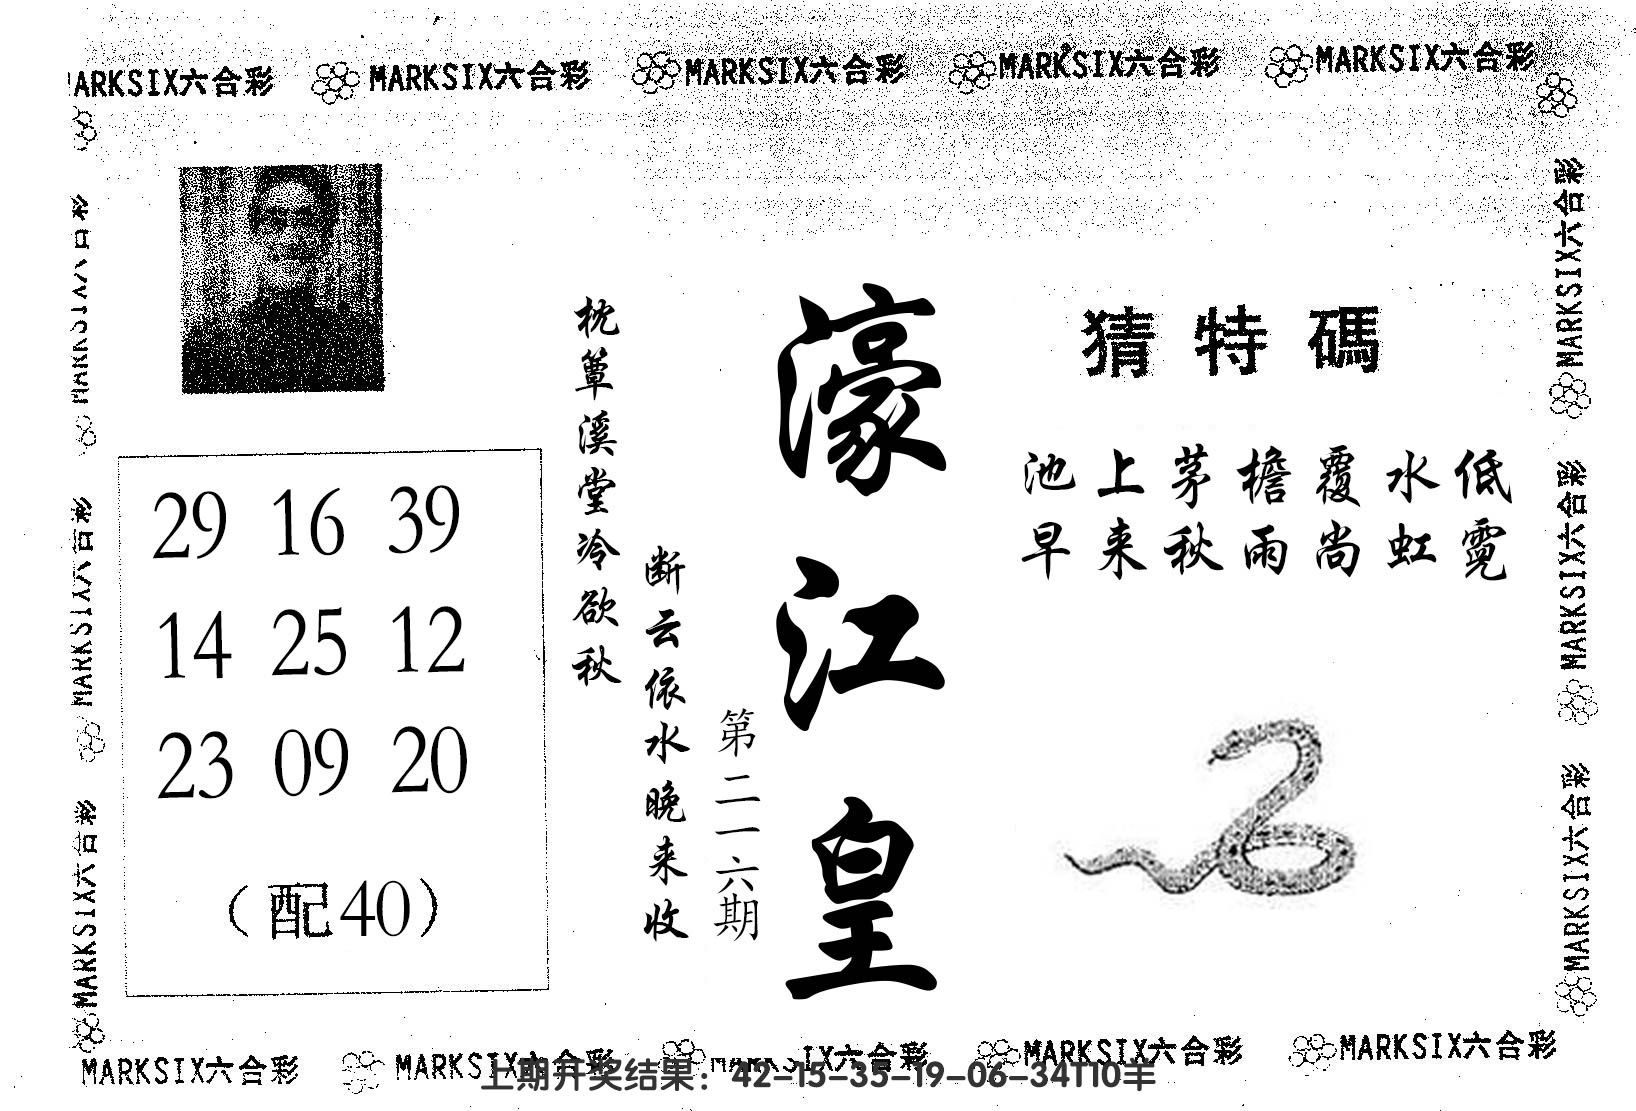 MARKSIX六合彩 MARKSIX六合彩 MARKSIX六合彩 MARKSIX六合彩 MARKSIX六合彩
猜特碼
池上茅檐覆水低
早来秋雨尚虹霓
濠江皇
第二一六期
枕簟溪堂冷欲秋
断云依水晚来收
29 16 39
14 25 12
23 09 20
（配40）
MARKSIX六合彩
MARKSIX六合彩
MARKSIX六合彩
MARKSIX六合彩
MARKSIX六合彩
MARKSIX六合彩
MARKSIX六合彩 MARKSIX六合彩 MARKSIX六合彩 MARKSIX六合彩 MARKSIX六合彩
上期开奖结果：42-15-35-19-06-34T10羊